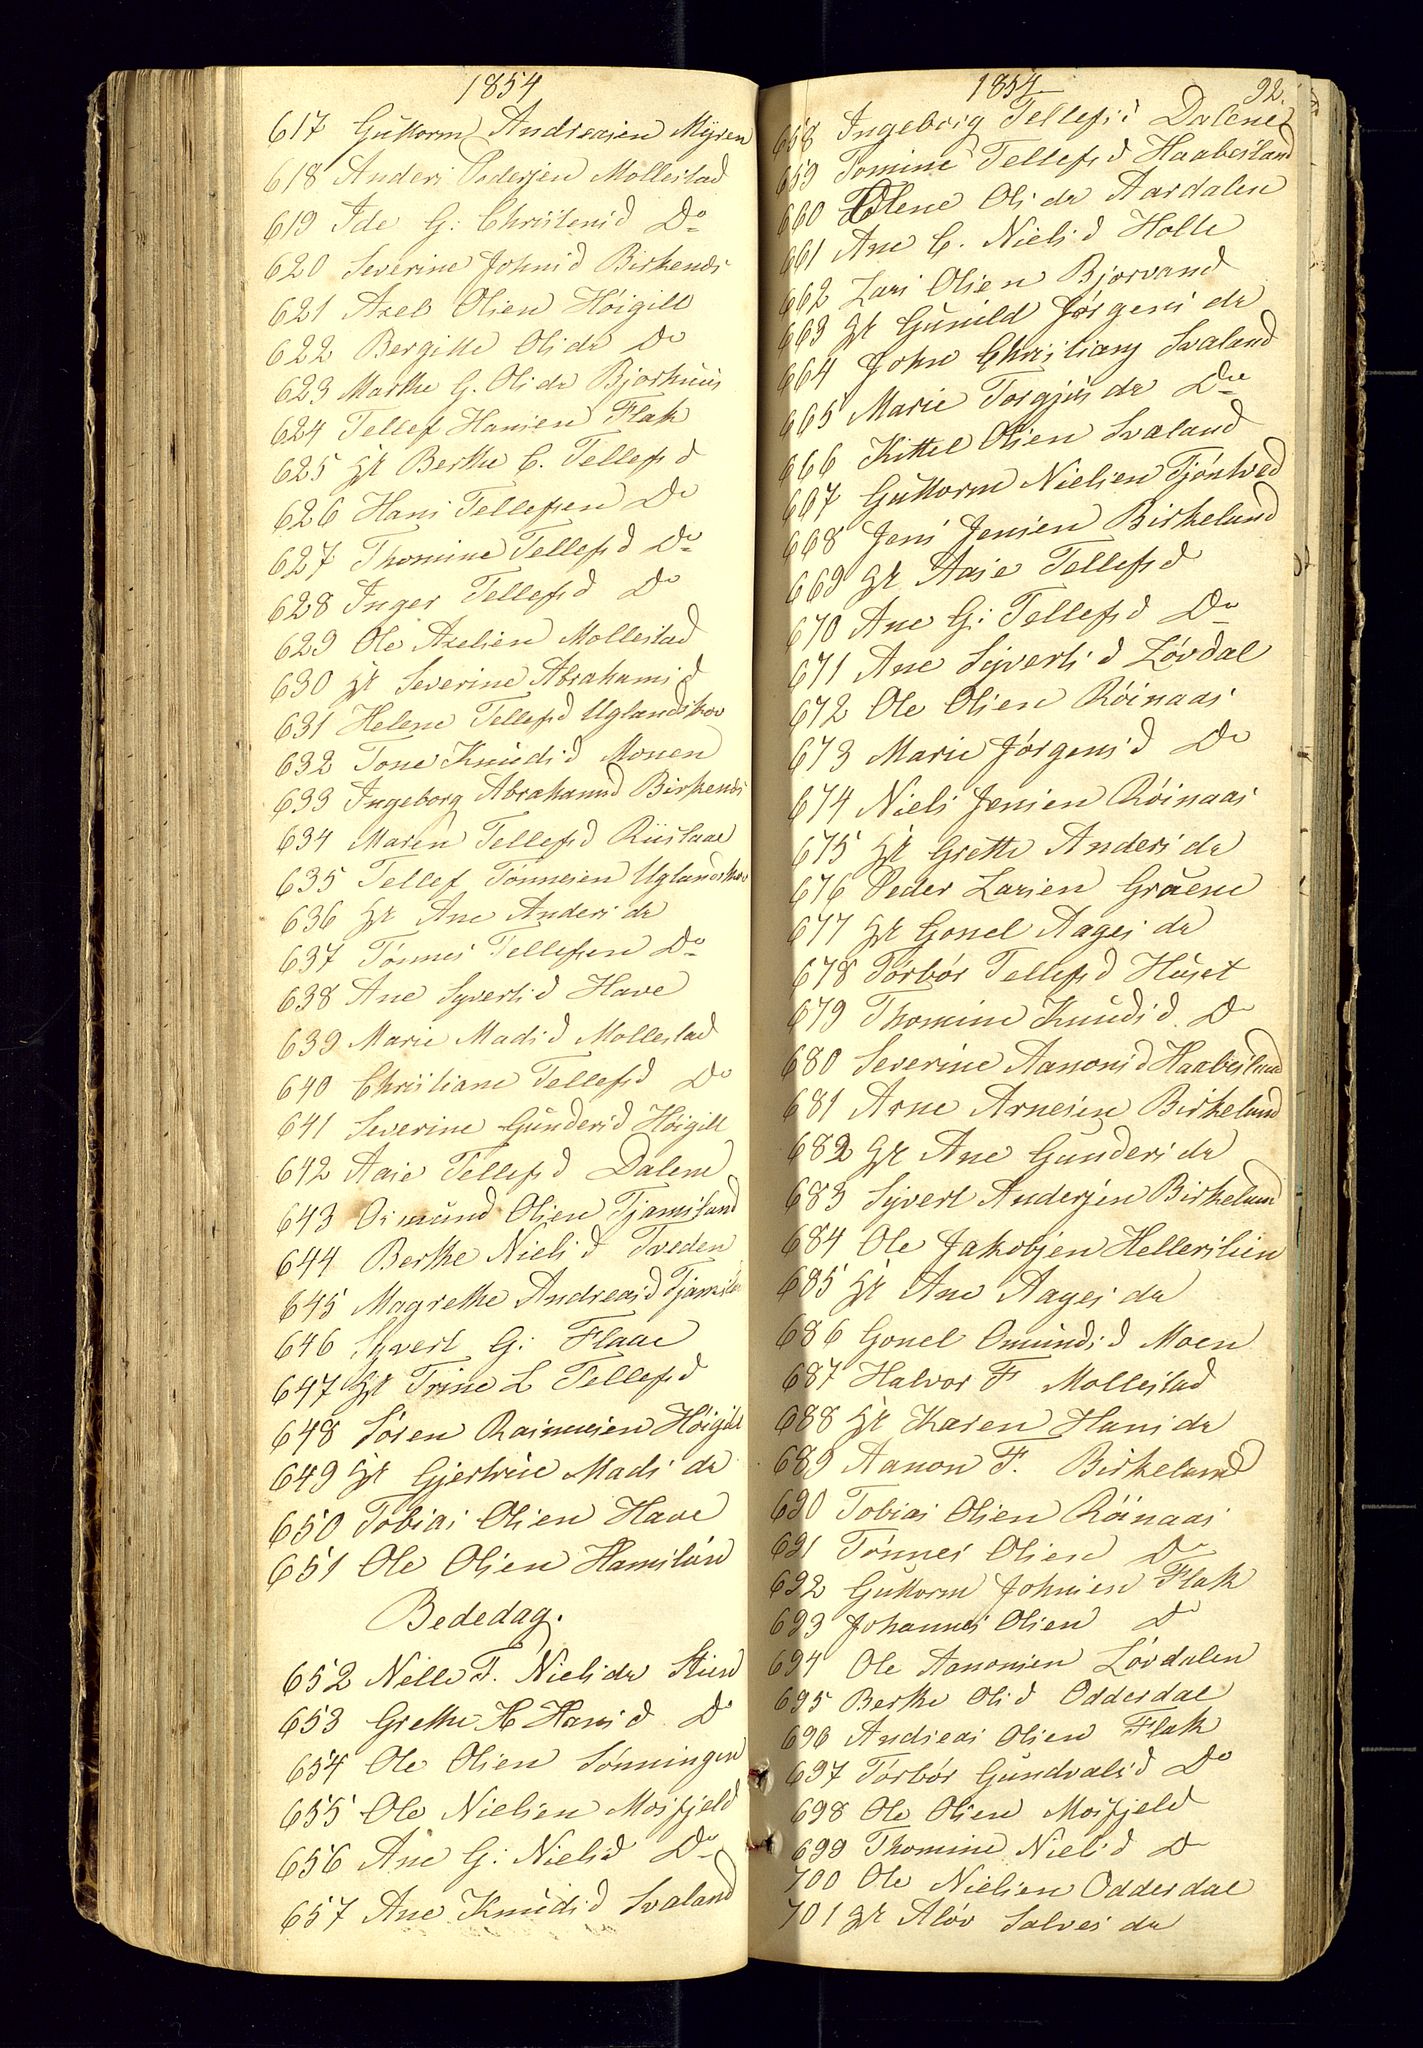 1854
617 Guttorm Andreasen Myren
618 Anders Pedersen Mollestad
619 Ide G: Christensd Do
620 Severine Johnsd Birkenes
621 Axel Olsen Höigilt
622 Bergitte Olsdr Do
623 Marthe G. Olsdr Bjorhuus
624 Tellef Hansen Flak
625 Hr Berthe C. Tellefsd
626 Hans Tellefsen Do
627 Thomine Tellefsd Do
628 Inger Tellefsd Do
629 Ole Axelsen Mollestad
630 Hr Severine Abrahamsd
631 Helene Tellefsd Uglandskov
632 Tone Knudsd Monen
633 Ingeborg Abrahamsd Birkenes
634 Maren Tellefsd Riislaae
635 Tellef Tönnesen Uglandskov
636 Hr Ane Andersdr
637 Tönnes Tellefsen Do
638 Ane Syvertsd Have
639 Marie Madsd Mollestad
640 Christiane Tellefsd Do
641 Severine Gundersd Höigilt
642 Aase Tellefsd Dalene
643 Osmund Olsen Tjamsland
644 Berthe Nielsd Tveden
645 Magrethe Andreasd
646 Syvert G: Flaae
647 Hr Trine L Tellefsd
648 Sören Rasmusen Höigilt
649 Hr Gjertrue Madsdr
650 Tobias Olsen Have
651 Ole Olsen Hamslien
Bededag.
652 Nelle T. Nielsdr Stien
653 Grethe H Hansd Do
654 Ole Olsen Sönningen
655 Ole Nielsen Mosfjeld
656 Ane G: Nielsd Do
657 Ane Knudsd Svaland
1854 92.
658 Ingeborg Tellefsd Dalene
659 Tomine Tellefsd Haabesland
660 Olene Olsdr Aardalen
661 Ane C. Nielsd Holte
662 Lars Olsen Bjorvand
663 Hr Gunild Jörgensdr
664 John Christians Svaland
665 Marie Torgjusdr Do
666 Kittel Olsen Svaland
667 Guttorm Nielsen Tjöntved
668 Jens Jensen Birkeland
669 Hr Aase Tellefsd
670 Ane G: Tellefsd Do
671 Ane Syvertsd Lövdal
672 Ole Olsen Röinaas
673 Marie Jörgensd Do
674 Niels Jensen Röinaas
675 Hr Grethe Andersdr
676 Peder Larsen Gruene
677 Hr Gonel Aagesdr
678 Törbör Tellefsd Huset
679 Thomine Knudsd. Do
680 Severine Aanonsd Haabesland
681 Arne Arnesen Birkeland
682 Hr Ane Gundersdr
683 Syvert Andersen Birkeland
684 Ole Jakobsen Helleslien
685 Hr Ane Aagesdr
686 Gonel Omundsd Moen
687 Halvor F Mollestad
688 Hr Karen Hansdr
689 Aanon F. Birkeland
690 Tobias Olsen Röinaas
691 Tönnes Olsen Do
692 Guttorm Johnsen Flak
693 Johannes Olsen Do
694 Ole Aanonsen Lövdalen
695 Berthe Olsd Odderdal
696 Andreas Olsen Flak
697 Törbör Gundvalsd Do
698 Ole Olsen Mosfjeld
699 Thomine Nielsd Do
700 Ole Nielsen Odderdal
701 Hr Alöv Salvesdr